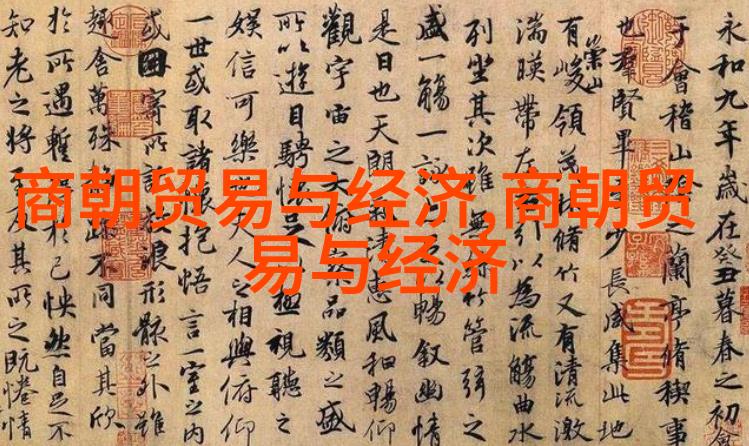 商朝贸易与经济,商朝贸
易与经济
永和九年歲在癸丑暮春之初會
于會稽山之蘭亭脩禊事
也羣賢畢少長咸集此地
有崇山峻領茂林脩竹又有清流激
湍暎帶左右引以為流觴曲水
列坐其次雖無竹管弦之
盛一觴一詠以暢叙幽情
是日也天朗氣清惠風和暢仰
觀宇宙之大俯察品類之盛
所以遊目騁懷足以極視聽之
娛信可樂也夫人之相與俯仰
一世或取諸懷抱悟言一室之內
或因寄所託放浪形骸之外雖
趣舍萬殊靜躁不同當其欣
於所遇暫得於己怏然自足不
知老之將至及其所之既惓情